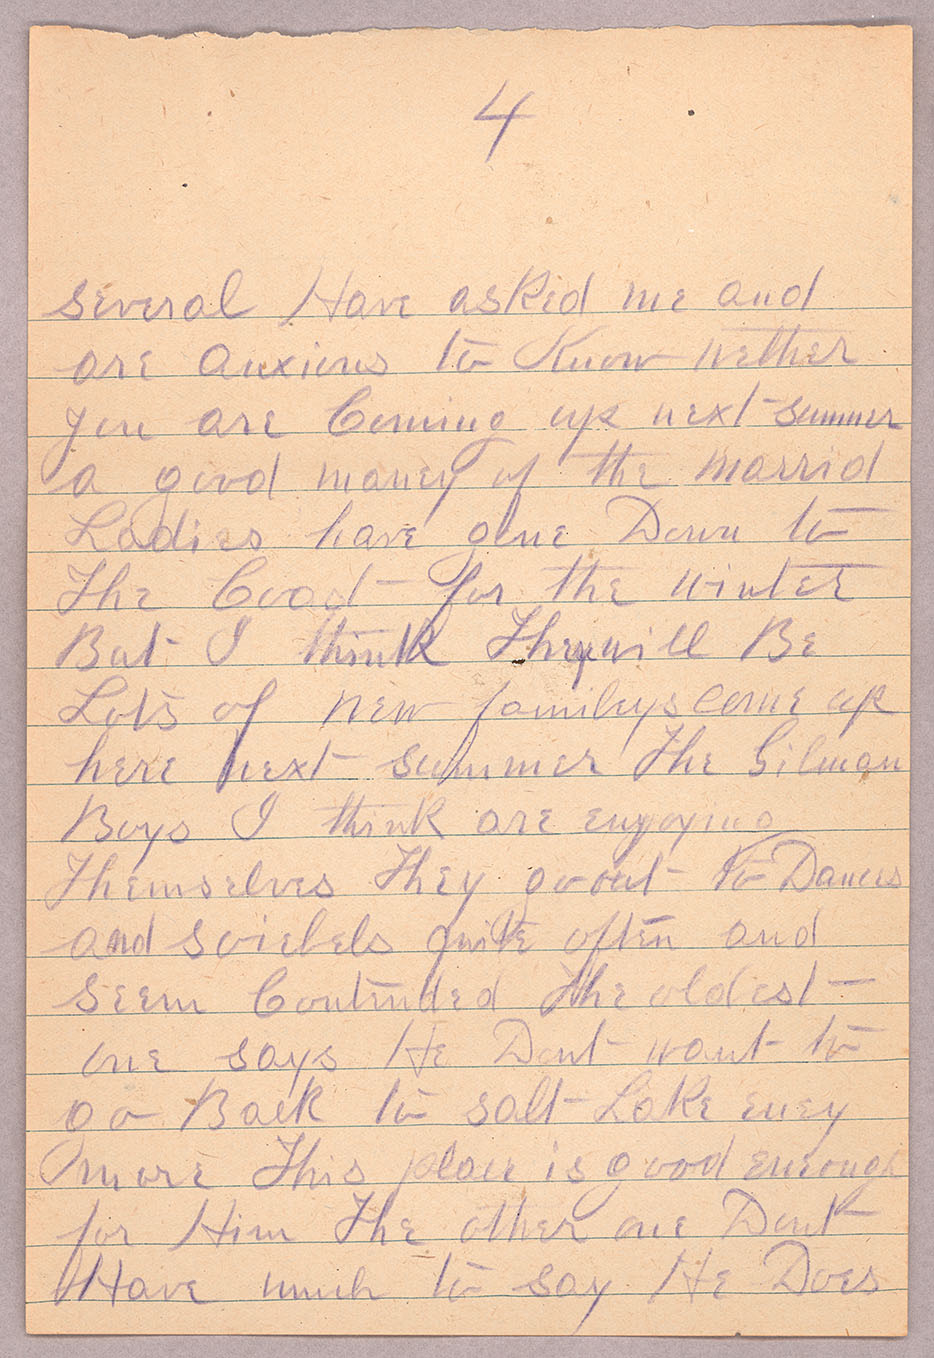 4
several Have asked me and
are auxious to Know wether
you are Coming up next summer
a good maney of the Marrid
Ladies have gone Down to
The Coast for the winter
But I think They will Be
Lots of new familys come up
here next summer The Gilman
Boys I think are enyoying
Themselves They go out to Dances
and soicbels quite often and
seem Contented The oldest
one says He Dont want to
go Back to salt Lake eney
more This place is good enough
for Him The other one Dont
Have much to say He Does